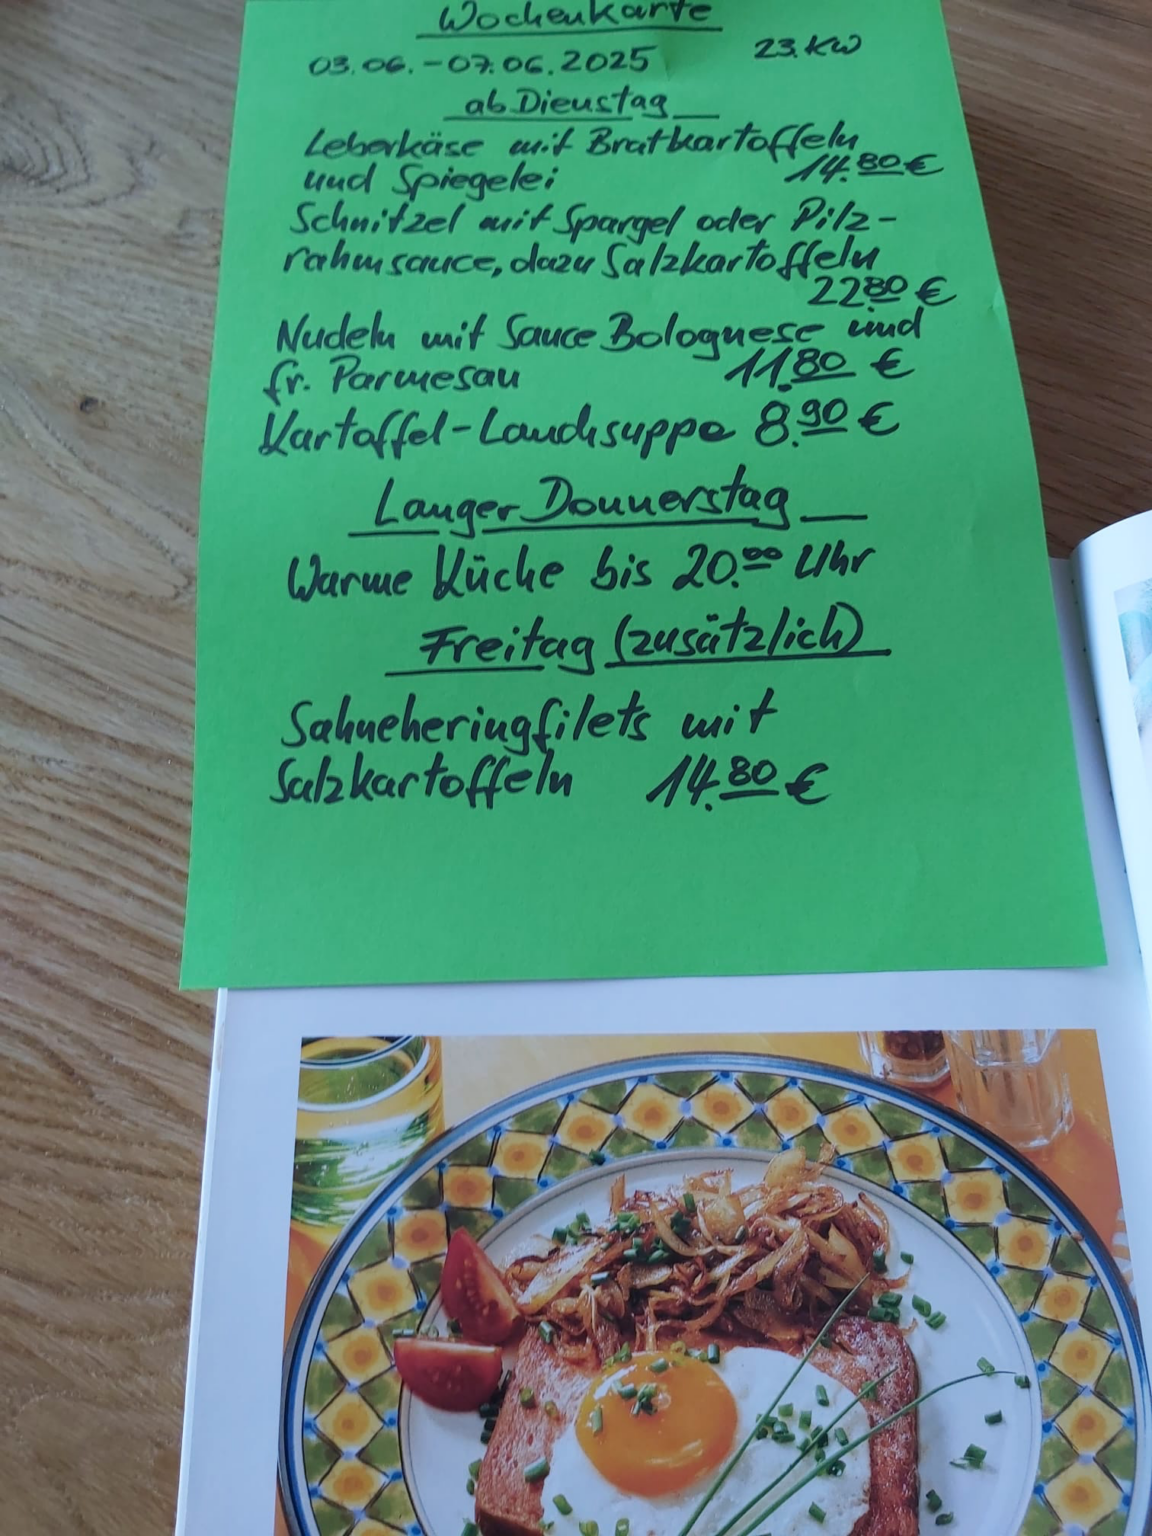 Wochenkarte
03.06.-07.06.2025 23.KW
ab Dienstag
Leberkäse mit Bratkartoffeln
und Spiegelei 14.80 €
Schnitzel mit Spargel oder Pilz-
rahmsauce, dazu Salzkartoffeln
22.80 €
Nudeln mit Sauce Bolognese und
fr. Parmesan 11.80 €
Kartoffel-Lauchsuppe 8.90 €
Langer Donnerstag
Warme Küche bis 20.00 Uhr
Freitag (zusätzlich)
Sahneheringfilets mit
Salzkartoffeln 14.80 €